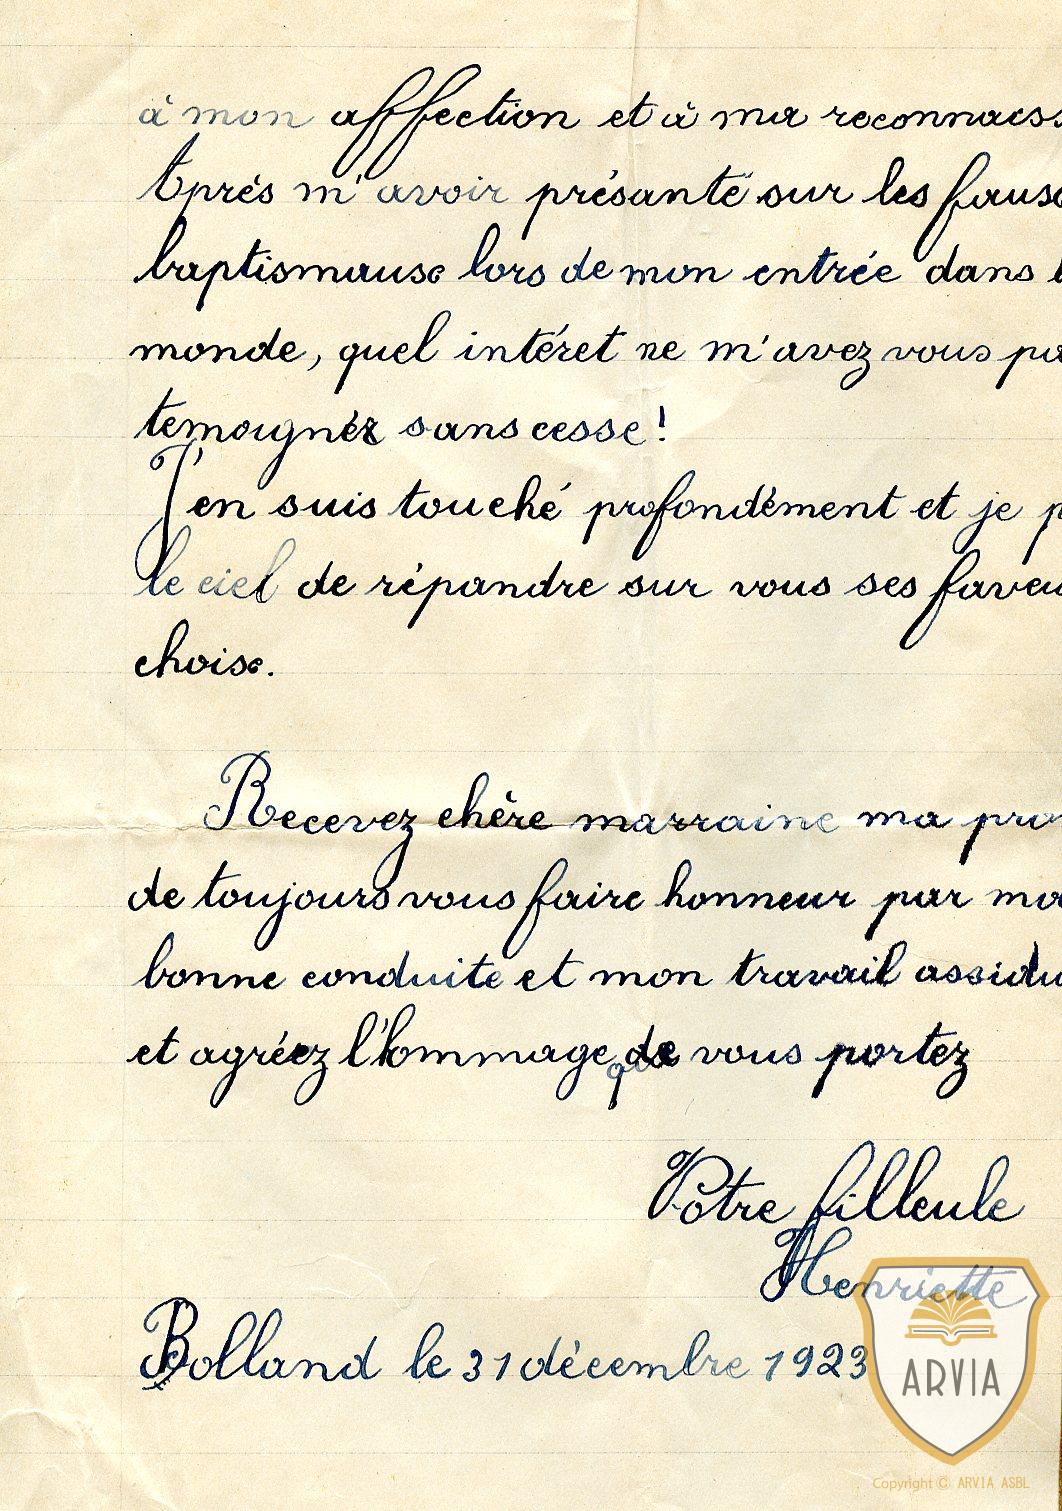 à mon affection et à ma reconnaiss
Après m'avoir présanté sur les fause
baptismause lors de mon entrée dans l
monde, quel intéret ne m'avez vous pa
temoignéz sans cesse!
J'en suis touché profondément et je p
le ciel de répandre sur vous ses faveu
choise.
Recevez chère marraine ma pro
de toujours vous faire honneur par ma
bonne conduite et mon travail assidu
et agréez l'hommage que vous portez
Votre filleule
Henriette
Bolland le 31 décembre 1923
ARVIA
Copyright © ARVIA ASBL